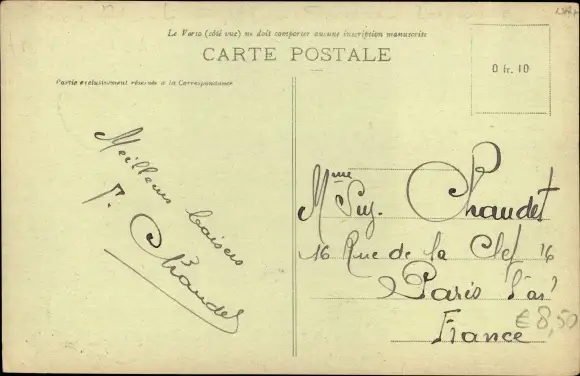 Le Verso (côté vue) ne doit comporter aucune inscription manuscrite
CARTE POSTALE
Partie exclusivement réservée à la Correspondance
0 fr. 10
Meilleurs baisers
P. Chaudet
Mme Chaudet
16 Rue de la Clef 16
Paris
France
€ 8,50